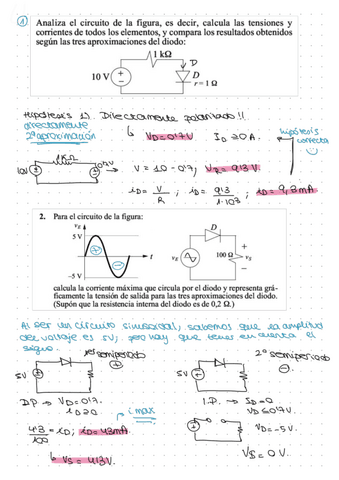 1
Analiza el circuito de la figura, es decir, calcula las tensiones y
corrientes de todos los elementos, y compara los resultados obtenidos
según las tres aproximaciones del diodo:
1 kΩ
D
10 V
D
r = 1 Ω
Hipótesis 1). Directamente polarizado!!
directamente
2ª aproximación
↳ VD=0'7V ID ≥ 0A.
hipótesis
correcta
1KΩ
10V
0'7V
V = 10 - 0'7; VR = 9'3 V.
iD = V/R ; iD = 9'3/1·10³ ; iD = 9,3mA
2. Para el circuito de la figura:
vE
5 V
t
–5 V
D
vE
100 Ω
+
vS
–
calcula la corriente máxima que circula por el diodo y representa grá-
ficamente la tensión de salida para las tres aproximaciones del diodo.
(Supón que la resistencia interna del diodo es de 0,2 Ω.)
Al ser un circuito sinusoidal, sabemos que la amplitud
del voltaje es 5V, pero hay que tener en cuenta el
signo.
1er semiperiodo
2º semiperiodo
5V
5V
D.P → VD=0'7.
iD≥0
i max
4'3/100 = iD; iD=43mA.
↳ VS = 4'3V.
I.P. → ID=0
VD≤0'7V.
VD=-5V.
VS=0V.